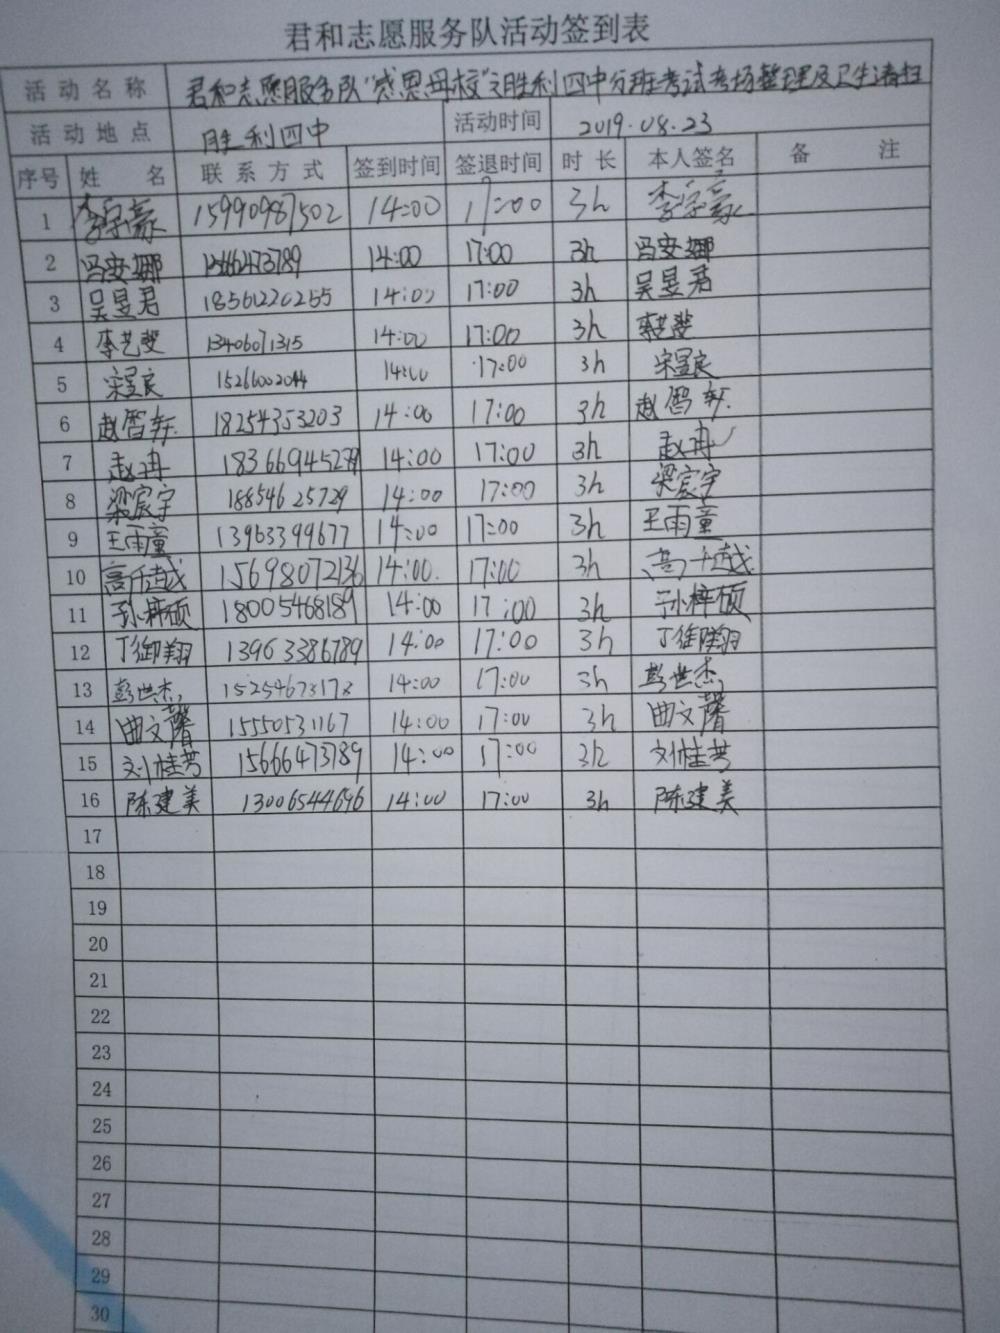 君和志愿服务队活动签到表
活动名称 君和志愿服务队"感恩母校"之胜利四中分班考试考场整理及卫生清扫
活动地点 胜利四中 活动时间 2019.08.23
序号 姓名 联系方式 签到时间 签退时间 时长 本人签名 备注
1 李宗豪 15990987502 14:00 17:00 3h 李宗豪
2 冯安娜 14:00 17:00 3h 冯安娜
3 吴昱君 18561220255 14:00 17:00 3h 吴昱君
4 李艺斐 13406071315 14:00 17:00 3h 李艺斐
5 宋昱良 15266002044 14:00 17:00 3h 宋昱良
6 赵智轩 18254353203 14:00 17:00 3h 赵智轩
7 赵冉 14:00 17:00 3h 赵冉
8 梁宸宇 18854625729 14:00 17:00 3h 梁宸宇
9 王雨童 13963399677 14:00 17:00 3h 王雨童
10 高千越 15698072136 14:00 17:00 3h 高千越
11 孙梓硕 18005468189 14:00 17:00 3h 孙梓硕
12 丁御翔 13963386789 14:00 17:00 3h 丁御翔
13 彭世杰 15254673178 14:00 17:00 3h 彭世杰
14 曲文馨 15550531167 14:00 17:00 3h 曲文馨
15 刘桂芳 15666473789 14:00 17:00 3h 刘桂芳
16 陈建美 13006544696 14:00 17:00 3h 陈建美
17
18
19
20
21
22
23
24
25
26
27
28
29
30